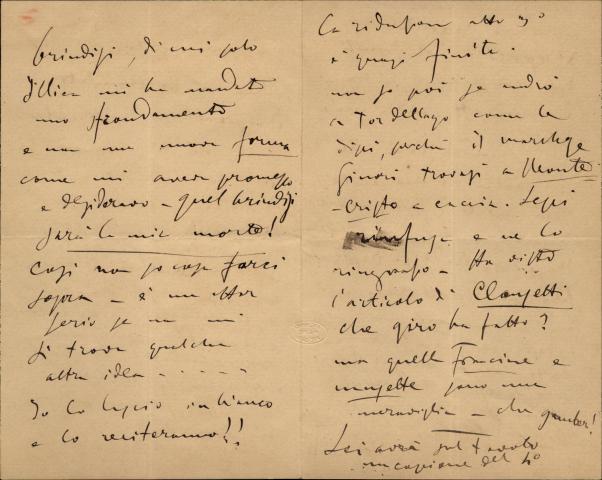 brindisi, di cui solo
Illica mi ha mandato
uno sfrondamento
e non una nuova forma
come mi aveva promesso
e desideravo - quel brindisi
sarà la mia morte!
Così non so cosa farci
sopra - è un affar
serio se non mi
si trova qualche
altra idea - - - - -
Io lo lascio in bianco
e lo reciteremo!!
La riduzione atto 3°
è quasi finita.
non so poi se andrò
a Tordellago come le
dissi, perché il marchese
Ginori trovasi a Monte
-Cristo a caccia. Lessi
e ne lo
ringrazio - Ha visto
l'articolo di Clausetti
che giro ha fatto?
ma quelle Francine e
musette sono una
meraviglia - che
Lei avrà sul tavolo
un copione del 4°